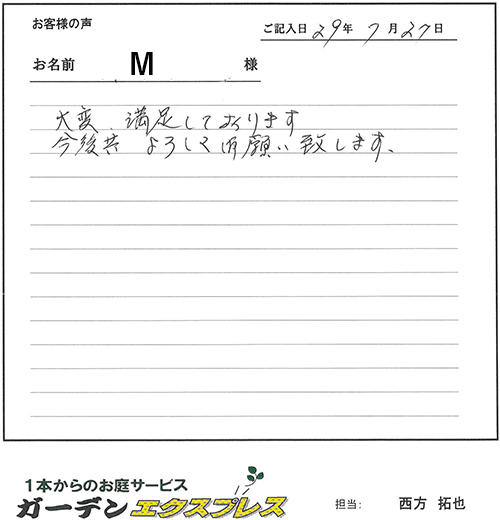 お客様の声
ご記入日 29年 7月27日
お名前 M 様
大変、満足しております
今後共 よろしく御願い致します、
1本からのお庭サービス
ガーデンエクスプレス
担当: 西方 拓也